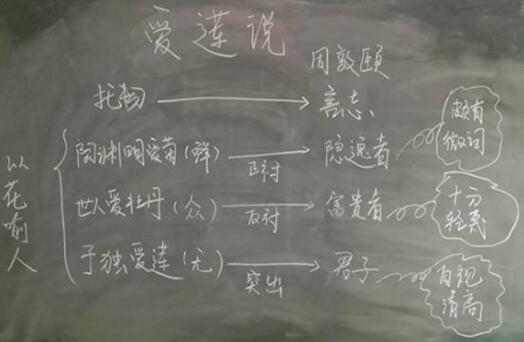 爱莲说
周敦颐
托物 言志
以花喻人
陶渊明爱菊（鲜） 正衬 隐逸者 颇有微词
世人爱牡丹（众） 反衬 富贵者 十分轻蔑
予独爱莲（无） 突出 君子 自视清高